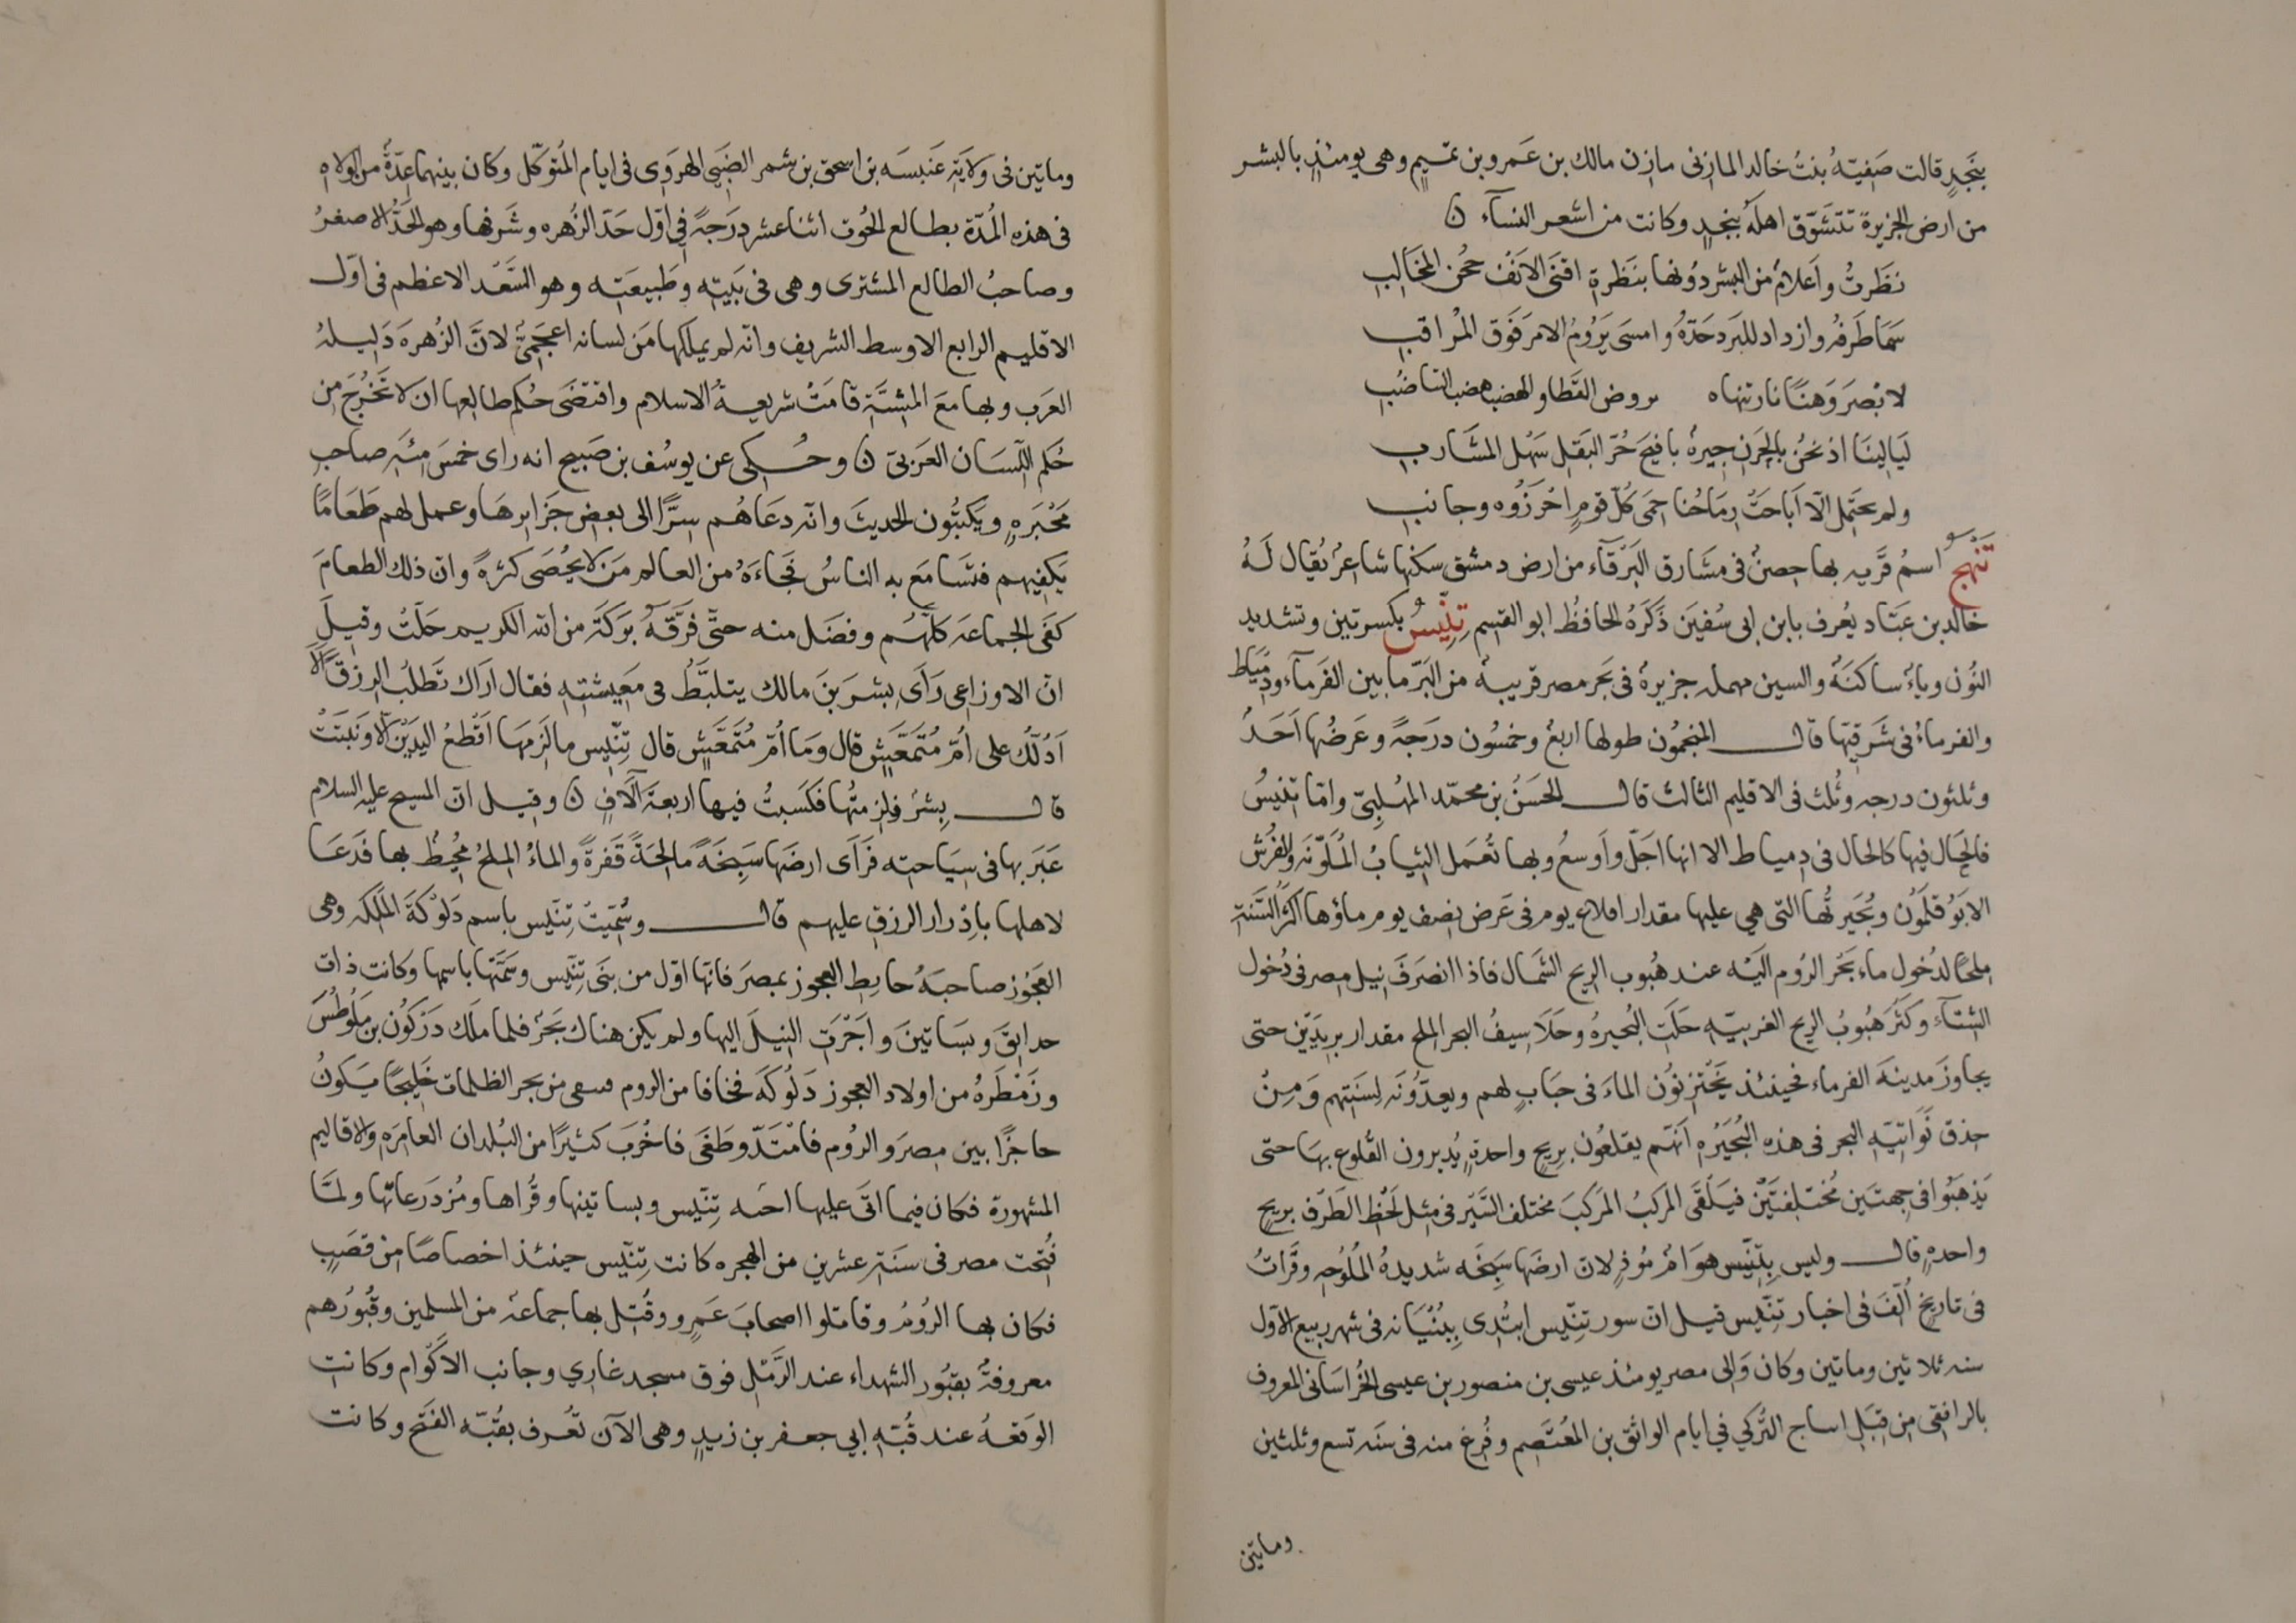 بنجد قالت صفية بنت خالد المازنى مازن مالك بن عمرو بن تميم وهى يومئذ بالبشر
من ارض الجزيرة تتشوق اهلها بنجد وكانت من اشعر النسآء ن
نظرت واعلام من البشر دونها بنظرة اقنى الانف حجن المخالب
سما طرفه وازداد للبرد حده وامسى يروم الامر فوق المراقب
لابصر وهنا نار تنهاه بروض القطا والهضب هضب التناضب
ليالينا اذ نحن بالحزن جيرة بافيح حر البقل سهل المشارب
ولم يحتمل الا اباحت رماحنا حمى كل قوم احرزوه وجانب
تنهج اسم قريه بها حصن فى مشارق البرقآء من ارض دمشق سكنها شاعر يقال له
خالد بن عباد يعرف بابن ابى سفين ذكره الحافظ ابو القسم تنيس بكسرتين وتشديد
النون وياء ساكنه والسين مهمله جزيرة فى بحر مصر قريبة من البر ما بين الفرمآء ودمياط
والفرماء فى شرقيها قال المنجمون طولها اربع وخمسون درجة وعرضها احد
وثلثون درجه وثلث فى الاقليم الثالث قال الحسن بن محمد المهلبى واما تنيس
فالحال فيها كالحال فى دمياط الا انها اجل واوسع وبها تعمل الثياب الملونه والفرش
الابوقلمون وبحيرتها التى هى عليها مقدار اقلاع يوم فى عرض نصف يوم ماؤها اكثر السنة
ملحا لدخول ماء بحر الروم اليه عند هبوب الريح الشمال فاذا انصرف نيل مصر فى دخول
الشتآء وكثر هبوب الريح الغربيه حلت البحيرة وحلا سيف البحر الملح مقدار بريدين حتى
يجاوز مدينة الفرماء فحينئذ يختزنون الماء فى جباب لهم ويعدونه لسنتهم ومن
حذق نواتية البحر فى هذه البحيره انهم يقلعون بريح واحدة يديرون القلوع بها حتى
يذهبوا فى جهتين مختلفتين فيلقى المركب المركب مختلف السير فى مثل لحظ الطرف بريح
واحدة قال وليس بتنيس هوام موذ لان ارضها سبخه شديدة الملوحه وقرات
فى تاريخ الف فى اخبار تنيس قيل ان سور تنيس ابتدى ببنيانه فى شهر ربيع الاول
سنه ثلاثين وماتين وكان والى مصر يومئذ عيسى بن منصور بن عيسى الخراسانى المعروف
بالرافقى من قبل اساج التركي في ايام الواثق بن المعتصم وفرغ منه فى سنه تسع وثلثين
وماتين
وماتين فى ولاية عنبسه بن اسحق بن شمر الضبى الهروى فى ايام المتوكل وكان بينهما عدة من الولاه
فى هذه المدة بطالع الحوت اثنا عشر درجة في اول حد الزهره وشرفها وهو الحد الاصغر
وصاحب الطالع المشترى وهى فى بيته وطبيعته وهو السعد الاعظم فى اول
الاقليم الرابع الاوسط الشريف وانه لم يملكها من لسانه اعجمى لان الزهرة دليله
العرب وبها مع المشترى قامت شريعة الاسلام واقتضى حكم طالعها ان لا تخرج من
حكم اللسان العربى ن وحكى عن يوسف بن صبيح انه راى خمس مئه صاحب
محبره ويكتبون الحديث وانه دعاهم سرا الى بعض جزايرها وعمل لهم طعاما
يكفيهم فتسامع به الناس فجاءه من العالم من لا يحصى كثرة وان ذلك الطعام
كفى الجماعه كلهم وفضل منه حتى فرقه بركة من الله الكريم حلت وقيل
ان الاوزاعى راى بشر بن مالك يتلبط فى معيشته فقال اراك تطلب الرزق الا
ادلك على ام متمعيش قال وما ام متمعيش قال تنيس ما لزمها اقطع اليدين الا ونبتت
قال بشر فلزمتها فكسبت فيها اربعة آلاف ن وقيل ان المسيح عليه السلام
عبر بها فى سياحته فراى ارضها سبخة مالحة قفرة والماء الملح محيط بها فدعا
لاهلها بادرار الرزق عليهم قال وسميت تنيس باسم دلوكة الملكه وهى
العجوز صاحبة حايط العجوز بمصر فانها اول من بنى تنيس وسمتها باسمها وكانت ذات
حدايق وبساتين واجرت النيل اليها ولم يكن هناك بحر فلما ملك دركون بن ملوطس
وزمطره من اولاد العجوز دلوكه فخافا من الروم فسعى من بحر الظلمات خليجا يكون
حاجزا بين مصر والروم فامتد وطغى فاخرب كثيرا من البلدان العامره والاقاليم
المشهورة فكان فيما اتى عليها احنه تنيس وبساتينها وقراها ومزدرعاتها ولما
فتحت مصر فى سنة عشرين من الهجره كانت تنيس حينئذ اخصاصا من قصب
فكان بها الروم وقاتلوا اصحاب عمرو وقتل بها جماعة من المسلمين وقبورهم
معروفة بقبور الشهداء عند الرمل فوق مسجد غازي وجانب الاكوام وكانت
الوقعة عند قبة ابي جعفر بن زيد وهى الآن تعرف بقبة الفتح وكانت